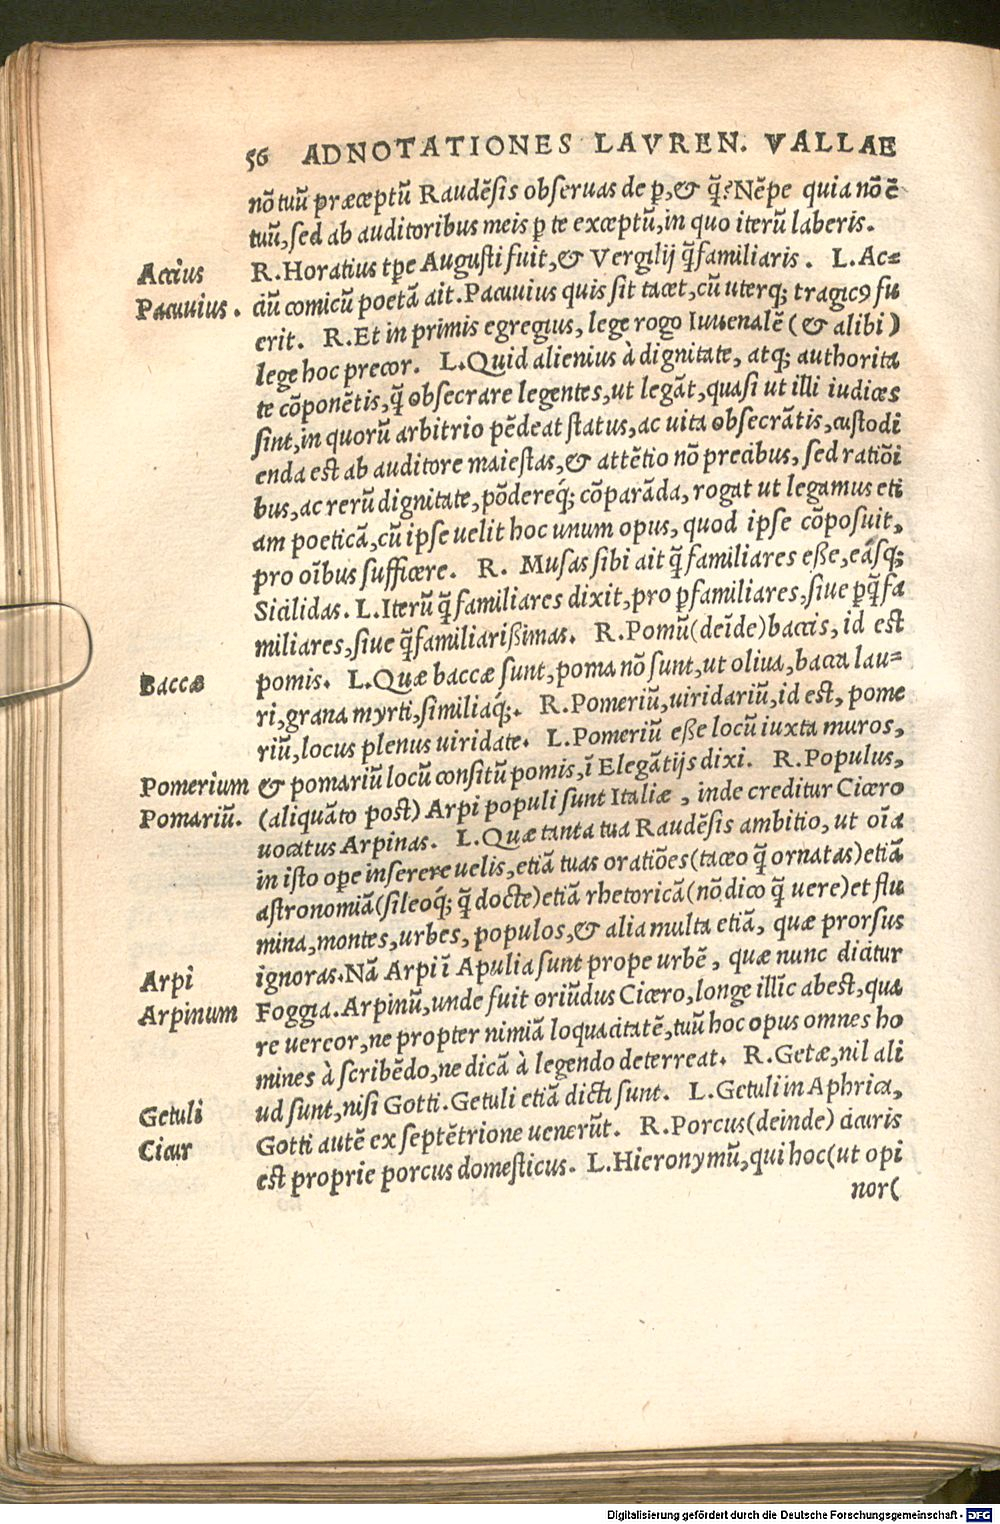 56 ADNOTATIONES LAVREN. VALLAE
nō tuū præceptū Raudēsis obseruas de p̱, & q̄? Nēpe quia nō ē
tuū, sed ab auditoribus meis p̱ te exceptū, in quo iterū laberis.
Accius R. Horatius tp̄e Augusti fuit, & Vergilij q̄familiaris. L. Ac=
Pacuuius. ciū comicū poetā ait. Pacuuius quis sit tacet, cū uterq; tragicꝰ fu
erit. R. Et in primis egregius, lege rogo Iuuenalē (& alibi)
lege hoc precor. L. Quid alienius à dignitate, atq; authorita
te cōponētis, q̄ obsecrare legentes, ut legāt, quasi ut illi iudices
sint, in quorū arbitrio pēdeat status, ac uita obsecrātis, custodi
enda est ab auditore maiestas, & attētio nō precibus, sed ratiōi
bus, ac rerū dignitate, pōdereq́; cōparāda, rogat ut legamus eti
am poeticā, cū ipse uelit hoc unum opus, quod ipse cōposuit,
pro oībus sufficere. R. Musas sibi ait q̄ familiares eße, eásq;
Sicilidas. L. Iterū q̄ familiares dixit, pro p̱familiares, siue p̱q̄fa
miliares, siue q̄familiarißimas. R. Pomū (deīde) baccis, id est
Baccæ pomis. L. Quæ baccæ sunt, poma nō sunt, ut oliua, bacca lau=
ri, grana myrti, similiaq́;. R. Pomeriū, uiridariū, id est, pome
riū, locus plenus uiridate. L. Pomeriū eße locū iuxta muros,
Pomerium & pomariū locū consitū pomis, ī Elegātijs dixi. R. Populus,
Pomariū. (aliquāto post) Arpi populi sunt Italiæ, inde creditur Cicero
uocatus Arpinas. L. Quæ tanta tua Raudēsis ambitio, ut oīa
in isto op̱e inserere uelis, etiā tuas oratiōes (taceo q̄ ornatas) etiā
astronomiā (sileoq́; q̄ docte) etiā rhetoricā (nō dico q̄ uere) et flu
mina, montes, urbes, populos, & alia multa etiā, quæ prorsus
Arpi ignoras. Nā Arpi ī Apulia sunt prope urbē, quæ nunc dicitur
Arpinum Foggia. Arpinū, unde fuit oriūdus Cicero, longe illīc abest, qua
re uereor, ne propter nimiā loquacitatē, tuū hoc opus omnes ho
mines à scribēdo, ne dicā à legendo deterreat. R. Getæ, nil ali
Getuli ud sunt, nisi Gotti. Getuli etiā dicti sunt. L. Getuli in Aphrica,
Cicur Gotti autē ex septētrione uenerūt. R. Porcus (deinde) cicuris
est proprie porcus domesticus. L. Hieronymū, qui hoc (ut opi
nor(
Digitalisierung gefördert durch die Deutsche Forschungsgemeinschaft - DFG